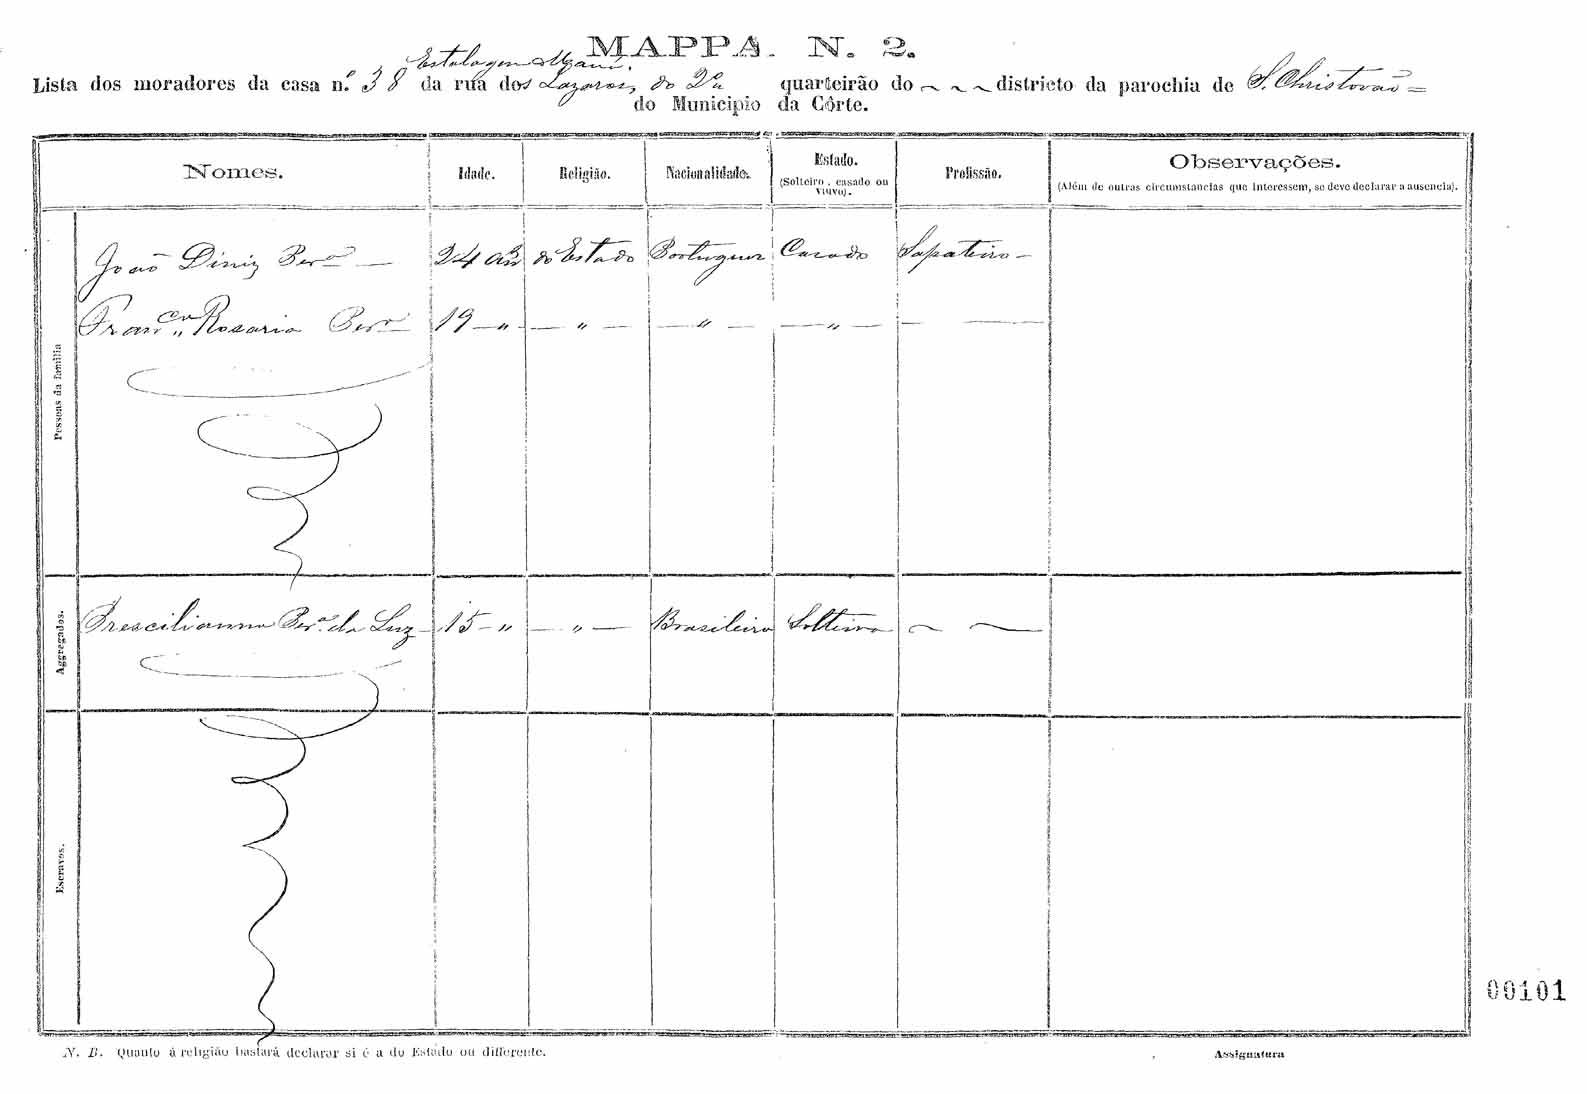 MAPPA. N. 2.
Estalagem
Lista dos moradores da casa n.º 38 da rua dos Lazaros, do 2º quarteirão do ~ ~ ~ districto da parochia de S. Christovão =
do Municipio da Côrte.
Nomes. Idade. Religião. Nacionalidade. Estado. Profissão. Observações.
(Solteiro, casado ou viuvo). (Além de outras circumstancias que interessem, se deve declarar a ausencia).
Pessoas da familia
João Diniz Perª — 24 ans do Estado Portuguez Casado Sapateiro —
Franca „ Rosaria Perª 19 — „ — „ — — „ — — „ — — —
Aggregados.
Prescilianna Perª da Luz — 15 — „ — „ — Brasileira Solteira ~ ~
Escravos.
00101
N. B. Quanto á religião bastará declarar si é a do Estado ou differente.
Assignatura